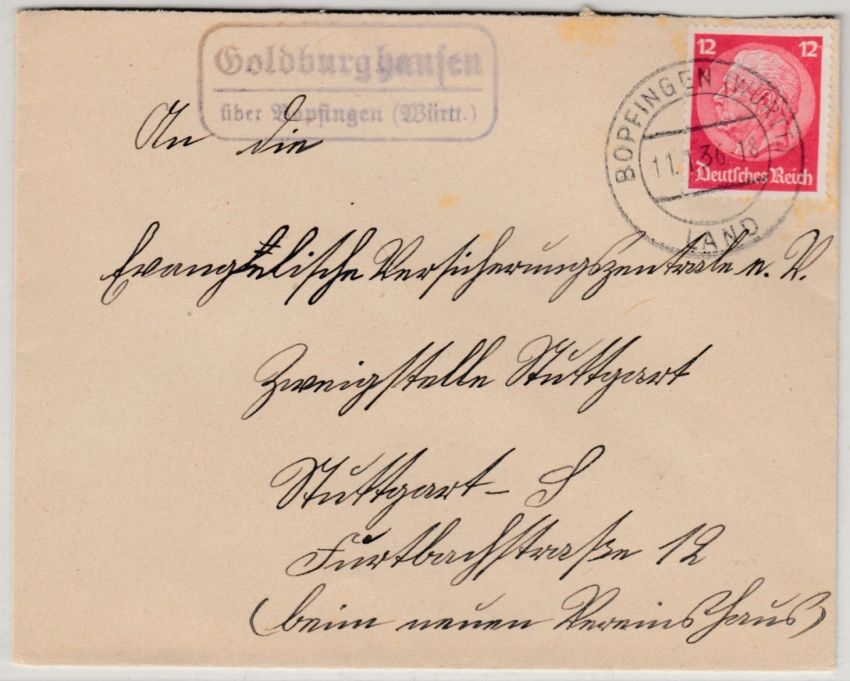 Goldburghausen
über Bopfingen (Württ.)
12 12
Deutsches Reich
BOPFINGEN (WÜRTT.)
11.1.36. 18
LAND
An die
Evangelische Versicherungszentrale e. V.
Zweigstelle Stuttgart
Stuttgart - S
Furtbachstraße 12
(beim neuen Vereinshaus)